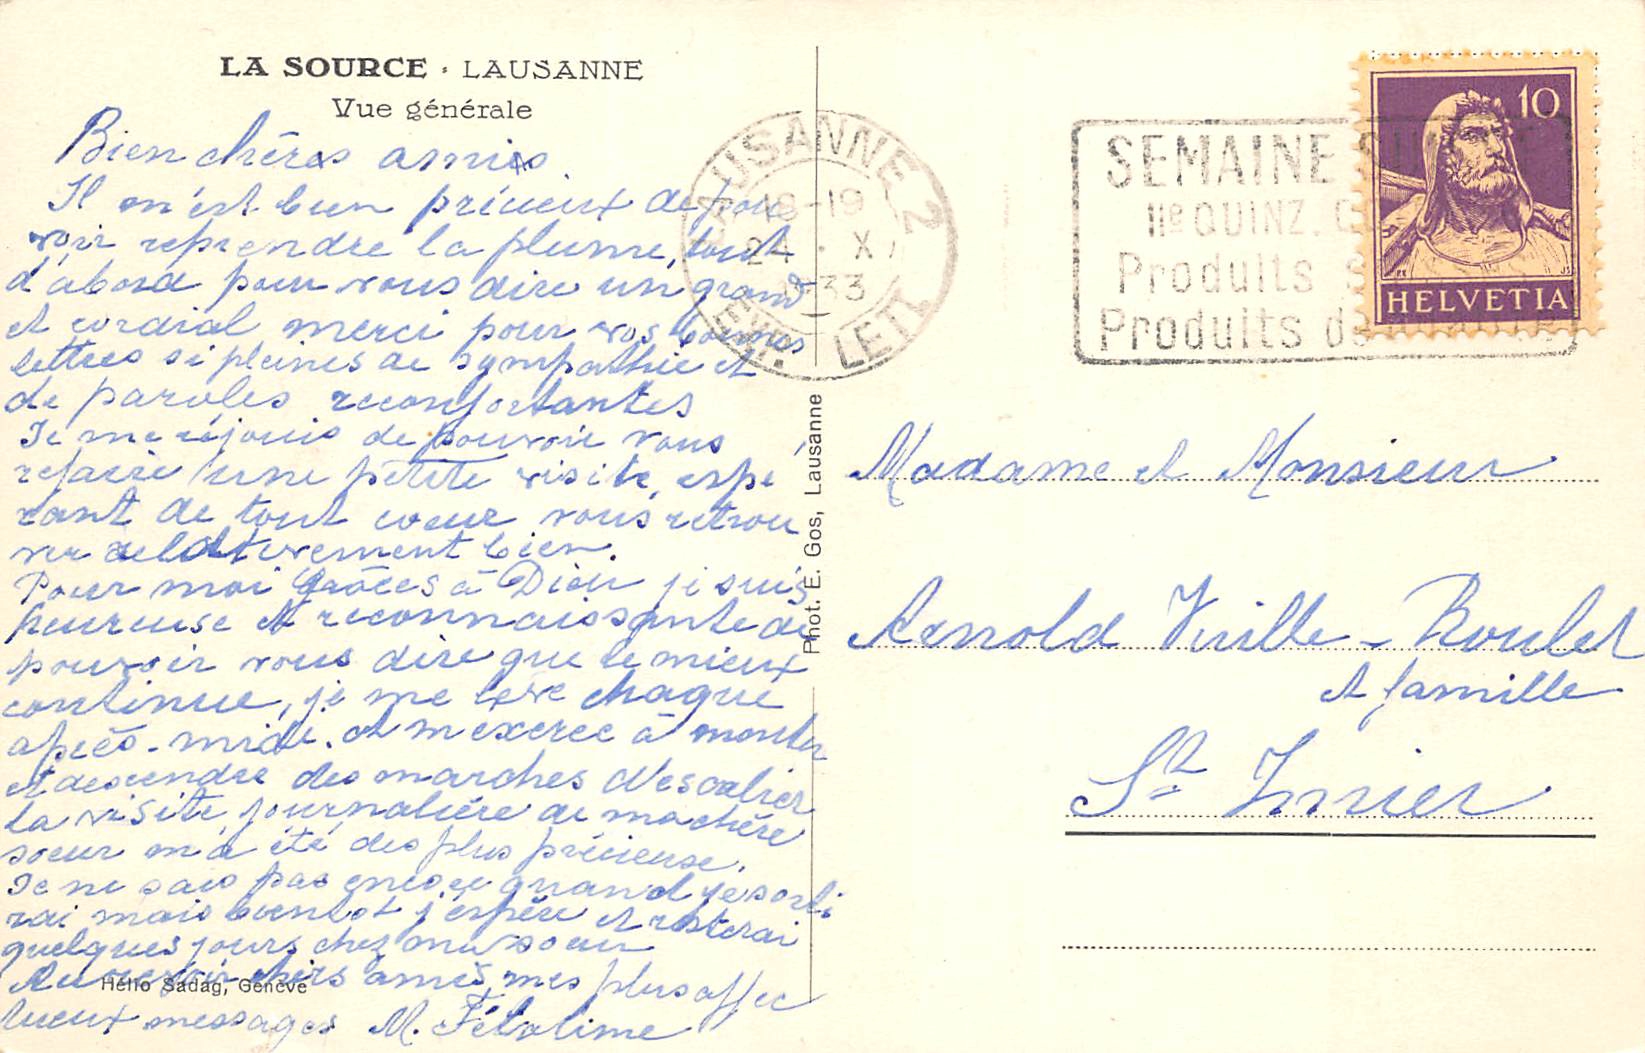 LA SOURCE · LAUSANNE
Vue générale
Bien chères amies
Il m'est bien précieux de pou
voir reprendre la plume, tout
d'abord pour vous dire un grand
et cordial merci pour vos bonnes
lettres si pleines de sympathie et
de paroles reconfortantes
Je me réjouis de pouvoir vous
refaire une petite visite, espé
rant de tout coeur vous retrou
ver relativement bien.
Pour moi Grâces à Dieu je suis
heureuse et reconnaissante de
pouvoir vous dire que le mieux
continue, je me lève chaque
après-midi. et m'exerce à monter
et descendre des marches d'escalier
la visite journalière de ma chère
soeur m'a été des plus précieuse.
Je ne sais pas encore quand je sorti
rai mais bientot j'éspère et resterai
quelques jours chez ma soeur
Au revoir chers amis, mes plus affec
tueux messages M.
Hélio Sadag, Genève
Phot. E. Gos, Lausanne
LAUSANNE 2
18-19
24. X
1933
EXP. LETT.
SEMAINE
IIe QUINZ.
Produits
Produits de
10
HELVETIA
Madame et Monsieur
Arnold Vuille-Roulet
et famille
St Imier